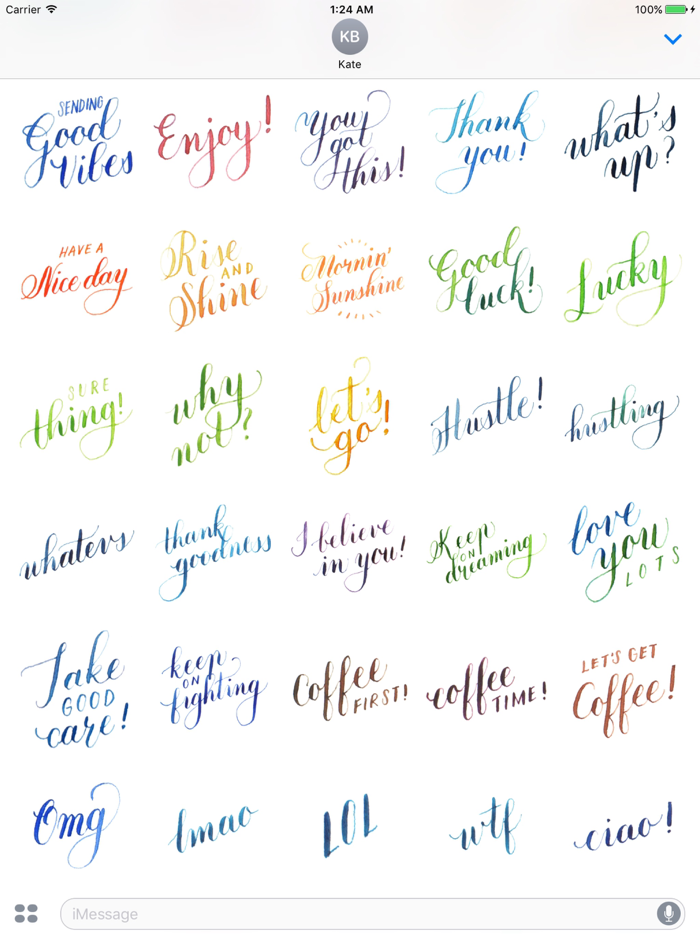 Carrier 1:24 AM 100%
KB
Kate
SENDING
Good
Vibes
Enjoy!
You
got
this!
Thank
you!
what's
up?
HAVE A
Nice day
Rise
AND
Shine
Mornin'
Sunshine
Good
luck!
Lucky
SURE
thing!
why
not?
let's
go!
Hustle!
hustling
whatevs
thank
goodness
I believe
in you!
Keep
ON
dreaming
love
you
LOTS
Take
GOOD
care!
keep
ON
fighting
Coffee
FIRST!
coffee
TIME!
LET'S GET
Coffee!
Omg
lmao
LOL
wtf
ciao!
iMessage